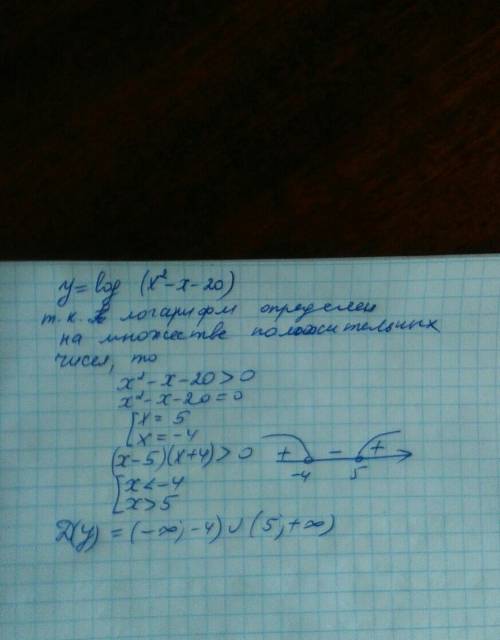 y = log (x² - x - 20)
т.к. логарифм определен
на множестве положительных
чисел, то
x² - x - 20 > 0
x² - x - 20 = 0
[ x = 5
[ x = -4
(x-5)(x+4) > 0
+ - +
-4 5
[ x < -4
[ x > 5
D(y) = (-∞; -4) ∪ (5; +∞)